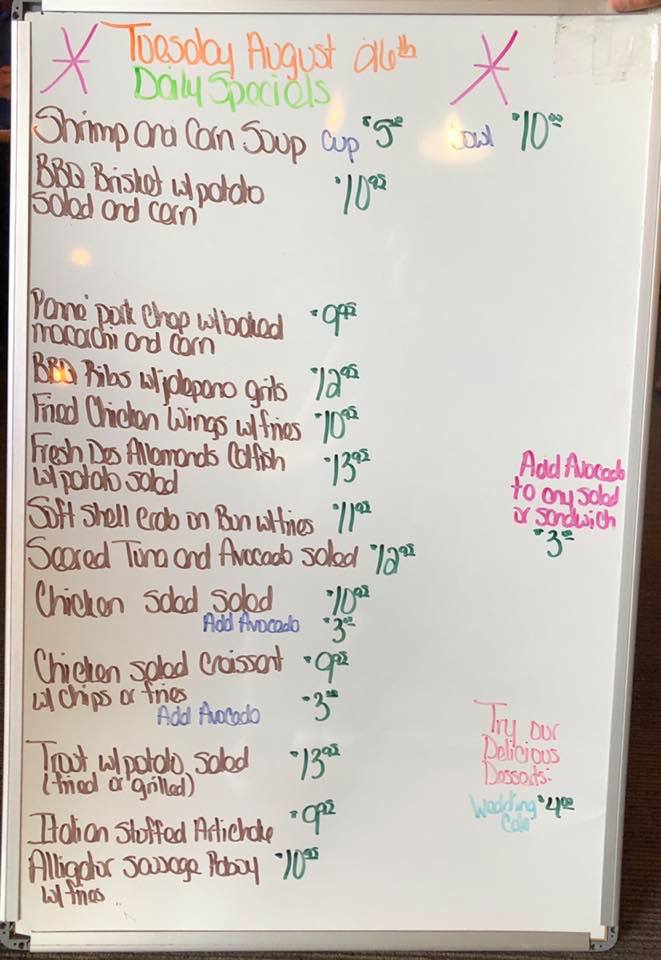 Tuesday August 26th
Daily Specials
Shrimp and Corn Soup cup $5.00 bowl $10.00
BBQ Brisket w/potato $10.95
salad and corn
Panné pork chop w/baked $9.95
macachi and corn
BBQ Ribs w/jalepano grits $12.95
Fried Chicken Wings w/fries $10.95
Fresh Des Allamands Catfish $13.95
w/potato salad
Add Avocado
to any salad
or sandwich
$3.00
Soft Shell Crab on Bun w/fries $11.95
Seared Tuna and Avocado salad $12.95
Chicken salad salad $10.95
Add Avocado $3.00
Chicken salad croissant $9.95
w/chips or fries
Add Avocado $3.00
Trout w/potato salad $13.95
(fried or grilled)
Try our
Delicious
Desserts:
Wedding $4.00
Cake
Italian Stuffed Artichoke $9.95
Alligator sausage Poboy $10.95
w/fries